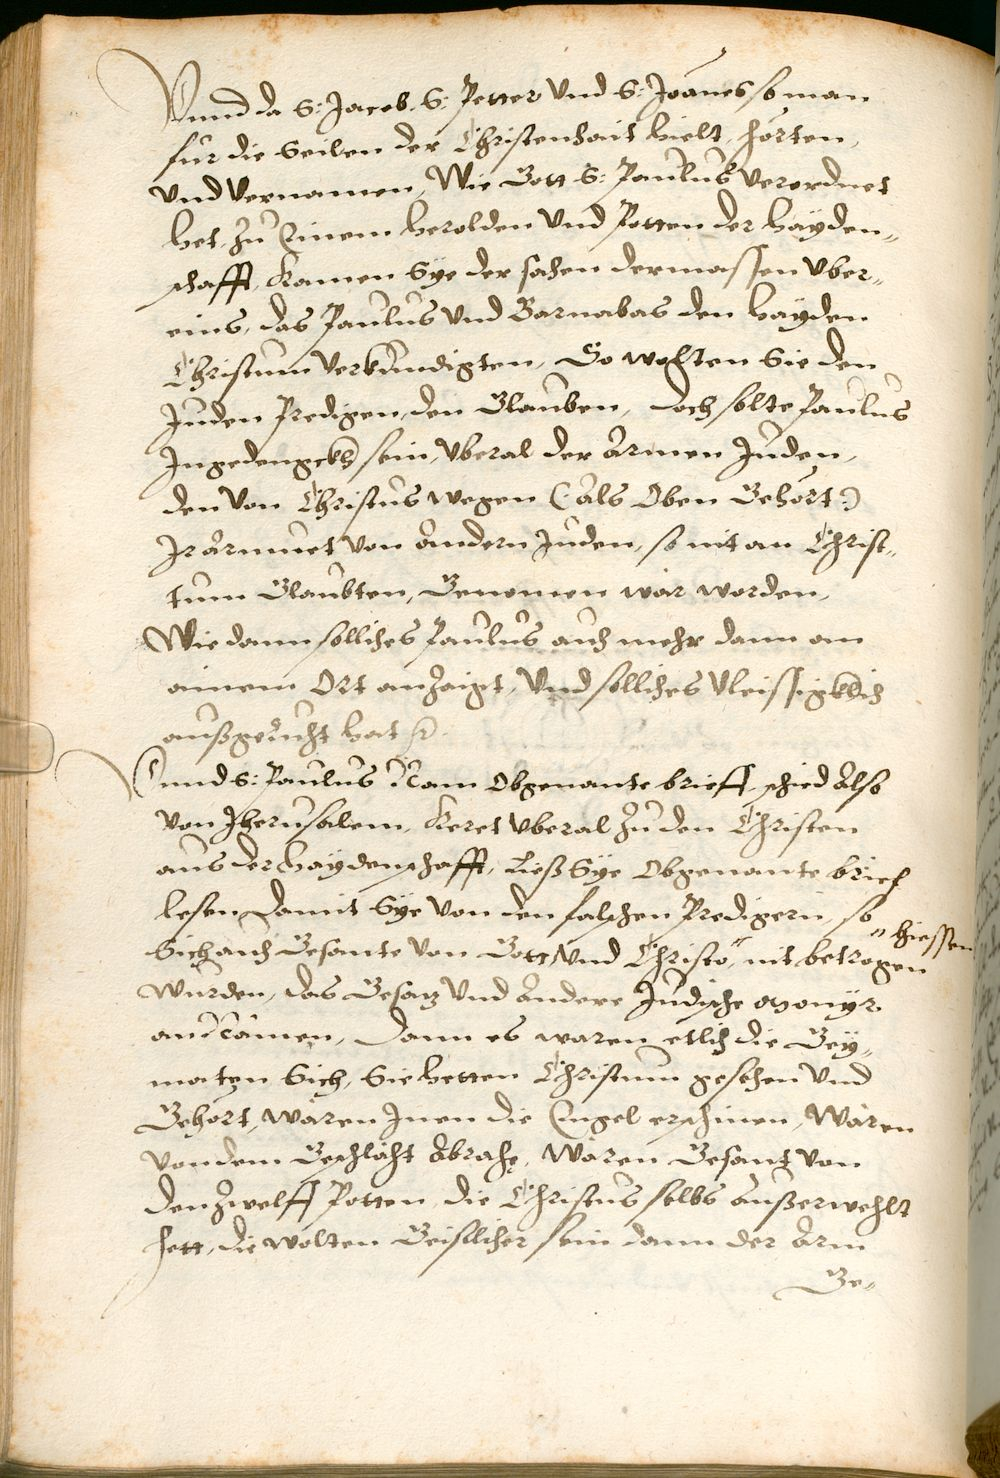 Unnd da S: Jacob. S: Petter Und S: Joanes so man
fur die Seilen der Christenhait hielt, horten,
Und Vernamen, Wie Gott S: Paulus Verordnet
het, Zu Einem herolden Und Potten der hayden„
schafft, Kamen Sye der sachen dermassen Uber„
eins, das Paulus Und Barnabas den hayden
Christum Verkundigten, So wolten Sie den
Juden Predigen, den Glauben, doch solte Paulus
Ingedengckh sein, Uberal der Armen Juden,
den Von Christus wegen (: als Oben Gehort :)
Ir Armuet Von Andern Juden, so nit an Chris„
tum Glaubten, Genomen war worden,
Wie dann solliches Paulus auch mehr dann an
ainem Ort anzaigt, Und solliches Vleissigklich
außgericht hat
Unnd S: Paulus Nam Obgenante brieff, schied Also
Von Jherusalem, Keret Uberal Zu den Christen
aus der haydenschafft, Ließ Sye Obgenante brief
lesen, damit Sye Von den falschen Predigern, so
„ hiessen
Sich auch Gesante Von Gott Und Christo, „ nit betrogen
wurden, das Gesatz Und Andere Judische
anNamen, dann es waren etlich die Bey„
Sich, Sie hetten Christum gesehen Und
Gehort, waren Inen die Engel erschinen, Waren
Von dem Geschlächt Abrahe, Waren Gesant Von
den Zwelff Potten, die Christus selbs Außerwehlt
hett, die wolten Geistlicher sein dann der Arm
Ge„